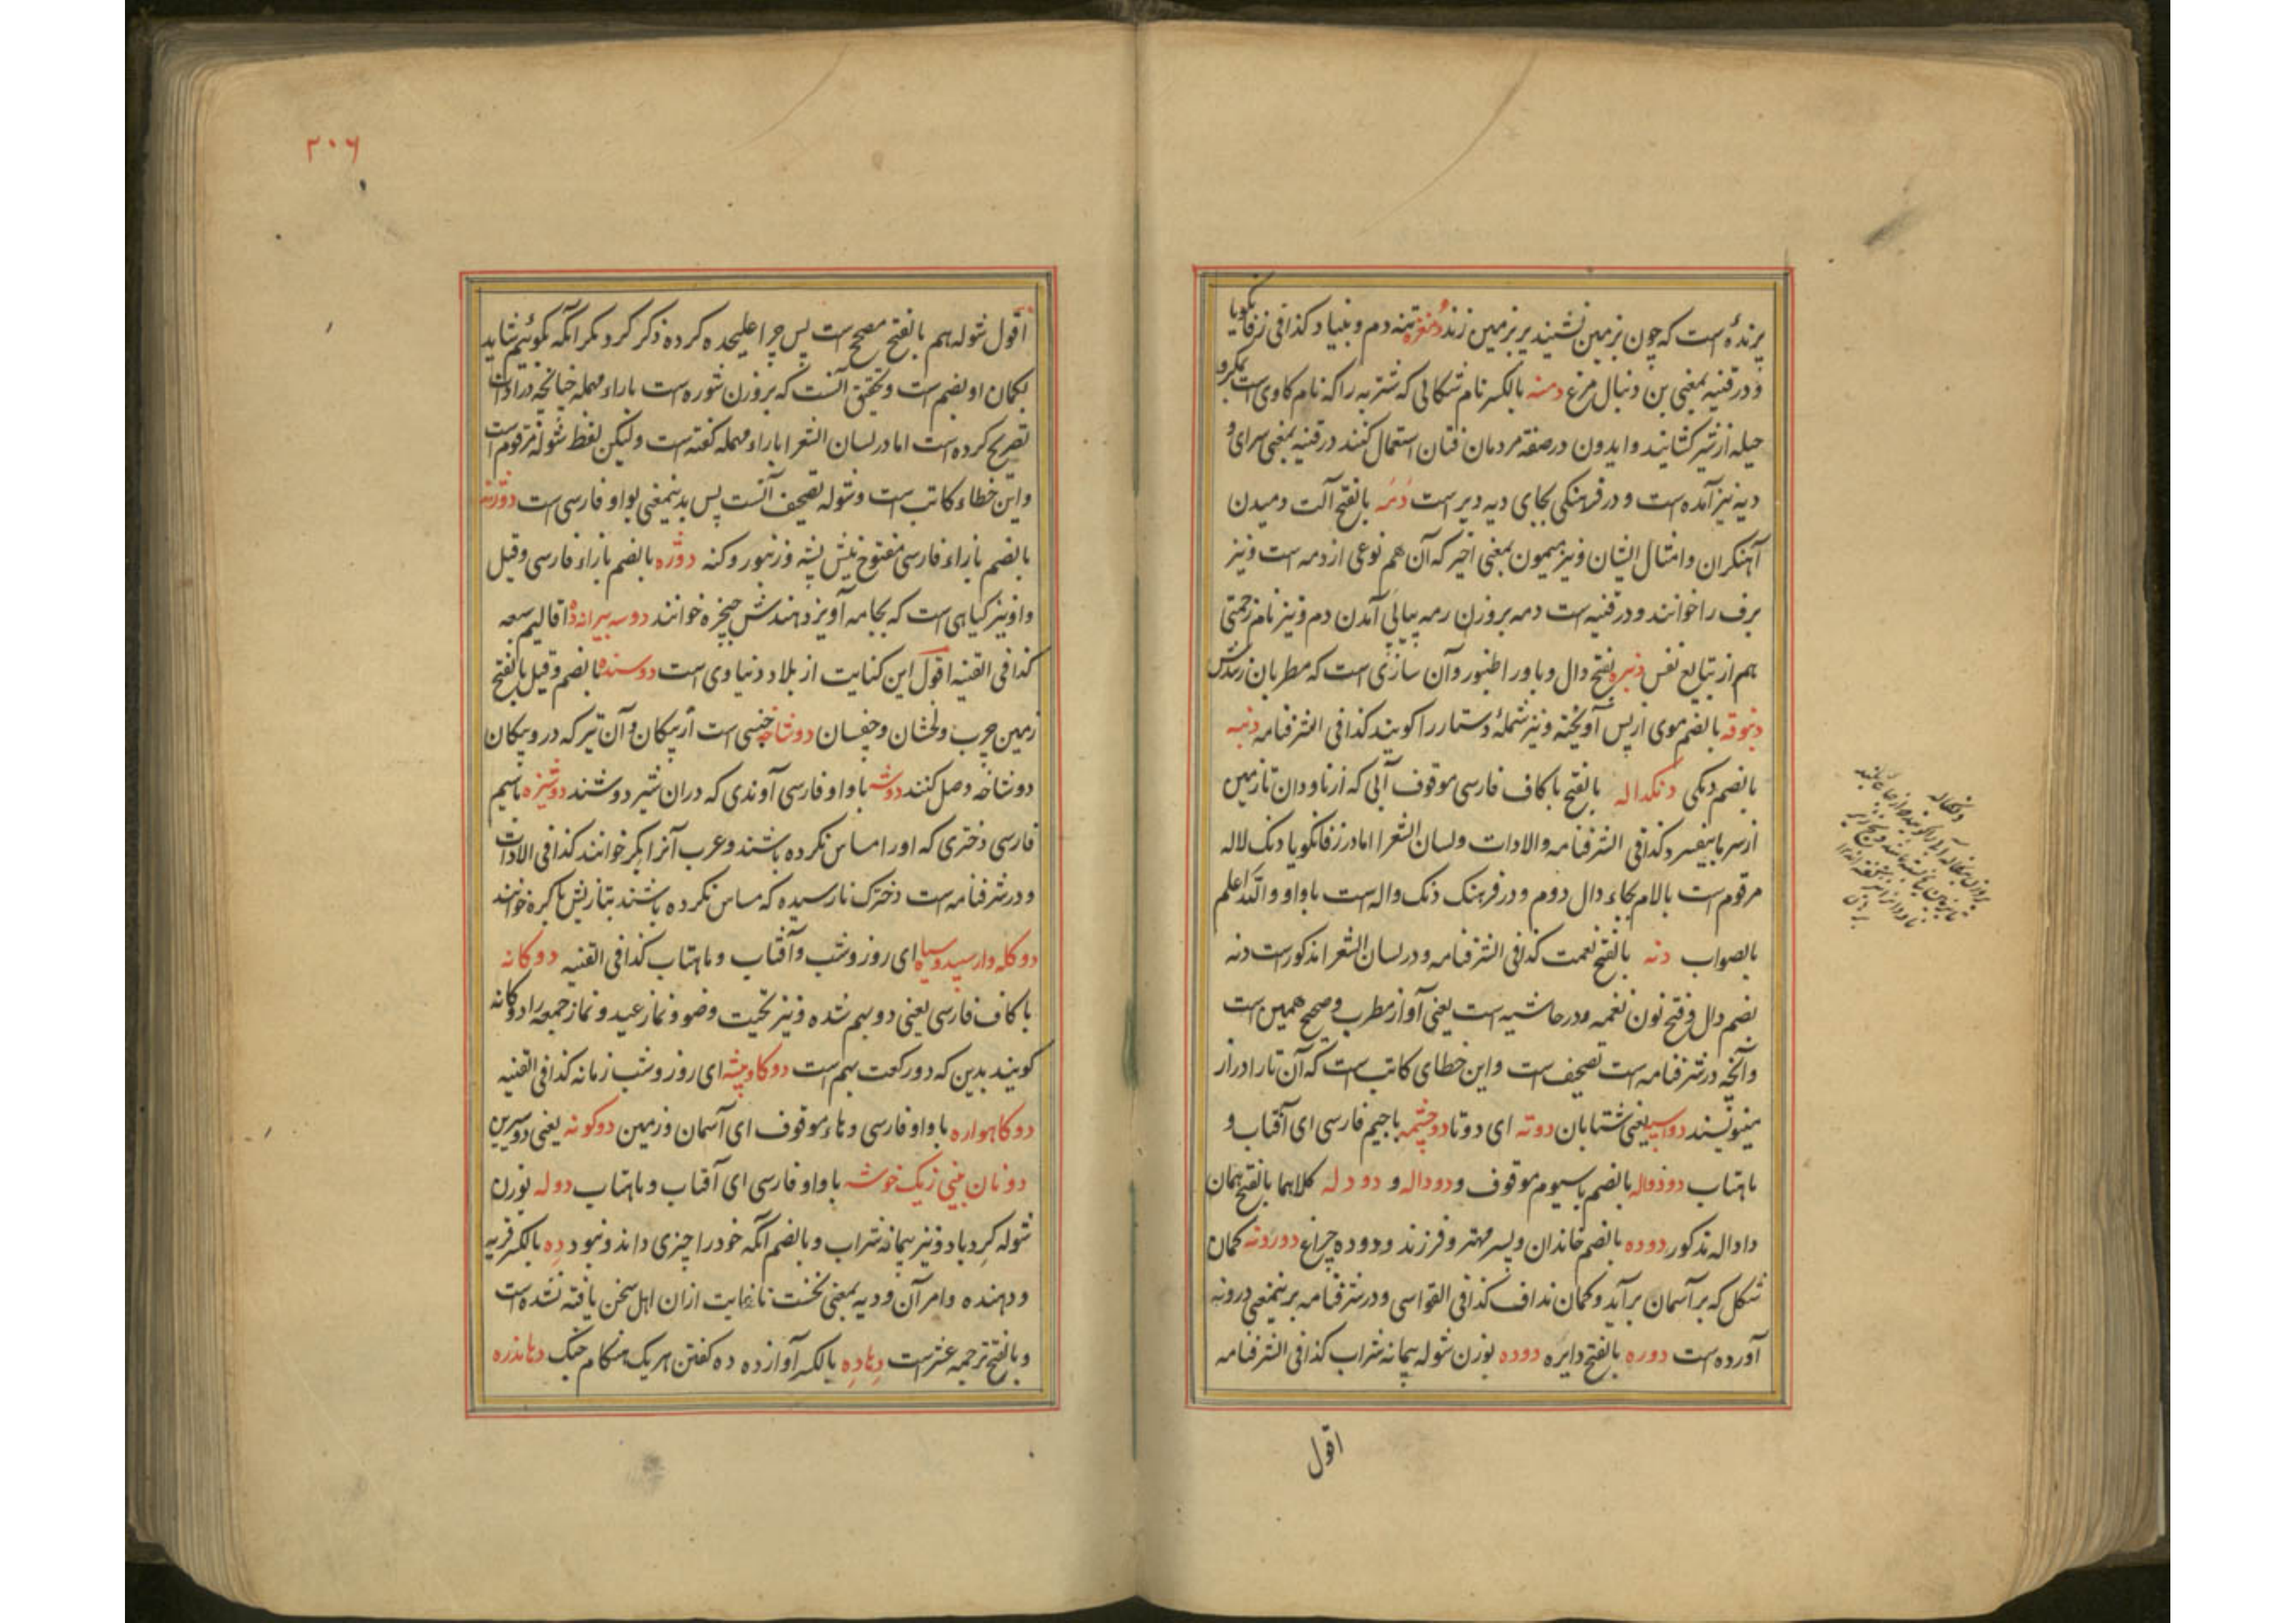 پرنده است که چون بزمین نشیند پر بر زمین زند دمغزه تنه دم و بنیاد کذا فی زفانکویا
و در قنیه بمعنی بن دنبال مرغ دمنه بالکسر نام شکالی که شتربه را که نام کاوی است بمکر و
حیله از شیر کشانید و ایدون در صفة مردمان فتان استعمال کنند در قنیه بمعنی سرای و
دیه نیز آمده است و در فرهنکی بجای دیه دیر است دمه بالفتح آلت دمیدن
آهنکران و امثال ایشان و نیز میمون بمعنی اخیر که آن هم نوعی از دمه است و نیز
برف را خوانند و در قنیه است دمه بروزن رمه پیاپی آمدن دم و نیز نام زحمتی
هم از تتابع نفس دنبره بفتح دال و با و را طنبور و آن سازی است که مطربان زنندش
دنبوقه بالضم موی از پس آویخته و نیز شملهٔ دستار را کویند کذا فی الشرفنامه دنبه
بالضم دنکی دنکداله بالفتح با کاف فارسی موقوف آبی که از ناودان تا زمین
از سرما بیفسرد کذا فی الشرفنامه والادات ولسان الشعرا اما در زفانکویا دنک لاله
مرقوم است بالام بجاء دال دوم و در فرهنک دنک واله است با واو والله اعلم
بالصواب دنه بالفتح نعمت کذا فی الشرفنامه و در لسان الشعرا مذکور است دنه
بضم دال و فتح نون نغمه و در حاشیه است یعنی آواز مطرب و صحیح همین است
و آنچه در شرفنامه است تصحیف است و این خطای کاتب است که آن تا را دراز
مینویسند دواسپه یعنی شتابان دوته ای دوتا دوچشمه با جیم فارسی ای آفتاب و
ماهتاب دودواله بالضم با سیوم موقوف و دوداله و دودله کلاهما بالفتح همان
داداله مذکور دوده بالضم خاندان و پسر مهتر و فرزند و دوده چراغ دورونه کمان
شکل که بر آسمان برآید و کمان نداف کذا فی القواسی و در شرفنامه برینمعنی درونه
آورده است دوره بالفتح دایره دوده بوزن شوله پیمانه شراب کذا فی الشرفنامه
اقول
دنکاله
۳۰۶
اقول شوله هم بالفتح مصحح است پس چرا علیحده کرده ذکر کرد مکر آنکه کوئیم شاید
بکمان او بضم است و تحقیق آنست که بروزن شوره است با راء مهمله چنانچه در ادات
تصریح کرده است اما در لسان الشعرا با راء مهمله کفته است ولیکن لفظ شوله مرقوم است
و این خطاء کاتب است و شوله تصحیف آنست پس بدینمعنی بواو فارسی است دوژنه
بالضم با زاء فارسی مفتوح نیش پشه و زنبور و کنه دوژه بالضم با زاء فارسی و قیل
واو نیز کیاهی است که بجامه آویزد هندش چچزه خوانند دوسه بیرانه ده اقالیم سبعه
کذا فی القنیه اقول این کنایت از بلاد دنیاوی است دوسنده بالضم و قیل بالفتح
زمین چرب و لخشان و چفسان دوشاخه جنسی است از پیکان و آن تیر که در و پیکان
دوشاخه وصل کنند دوشه با واو فارسی آوندی که دران شیر دوشند دوشیزه با سیم
فارسی دختری که او را مساس نکرده باشند و عرب آنرا بکر خوانند کذا فی الادات
و در شرفنامه است دخترک نارسیده که مساس نکرده باشند بتازیش باکره خوانند
دو کله وار سپید و سیاه ای روز و شب و آفتاب و ماهتاب کذا فی القنیه دوکانه
با کاف فارسی یعنی دو بهم شده و نیز تحیت وضو و نماز عید و نماز جمعه را دوکانه
کویند بدین که دو رکعت بهم است دو کاو پیشه ای روز و شب زمانه کذا فی القنیه
دو کاهواره با واو فارسی و هاء موقوف ای آسمان و زمین دوکونه یعنی دو سرین
دو نان بینی ز یک خوشه با واو فارسی ای آفتاب و ماهتاب دوله بوزن
شوله کرد باد و نیز پیمانه شراب و بالضم آنکه خود را چیزی داند و نبود ده بالکسر قریه
و دهنده و امر آن و دیه بمعنی نخست تا غایت ازان اهل سخن یافته نشده است
و بالفتح ترجمه عشر است دهاده بالکسر آواز ده ده کفتن هر یک هنکام جنک دهانذره